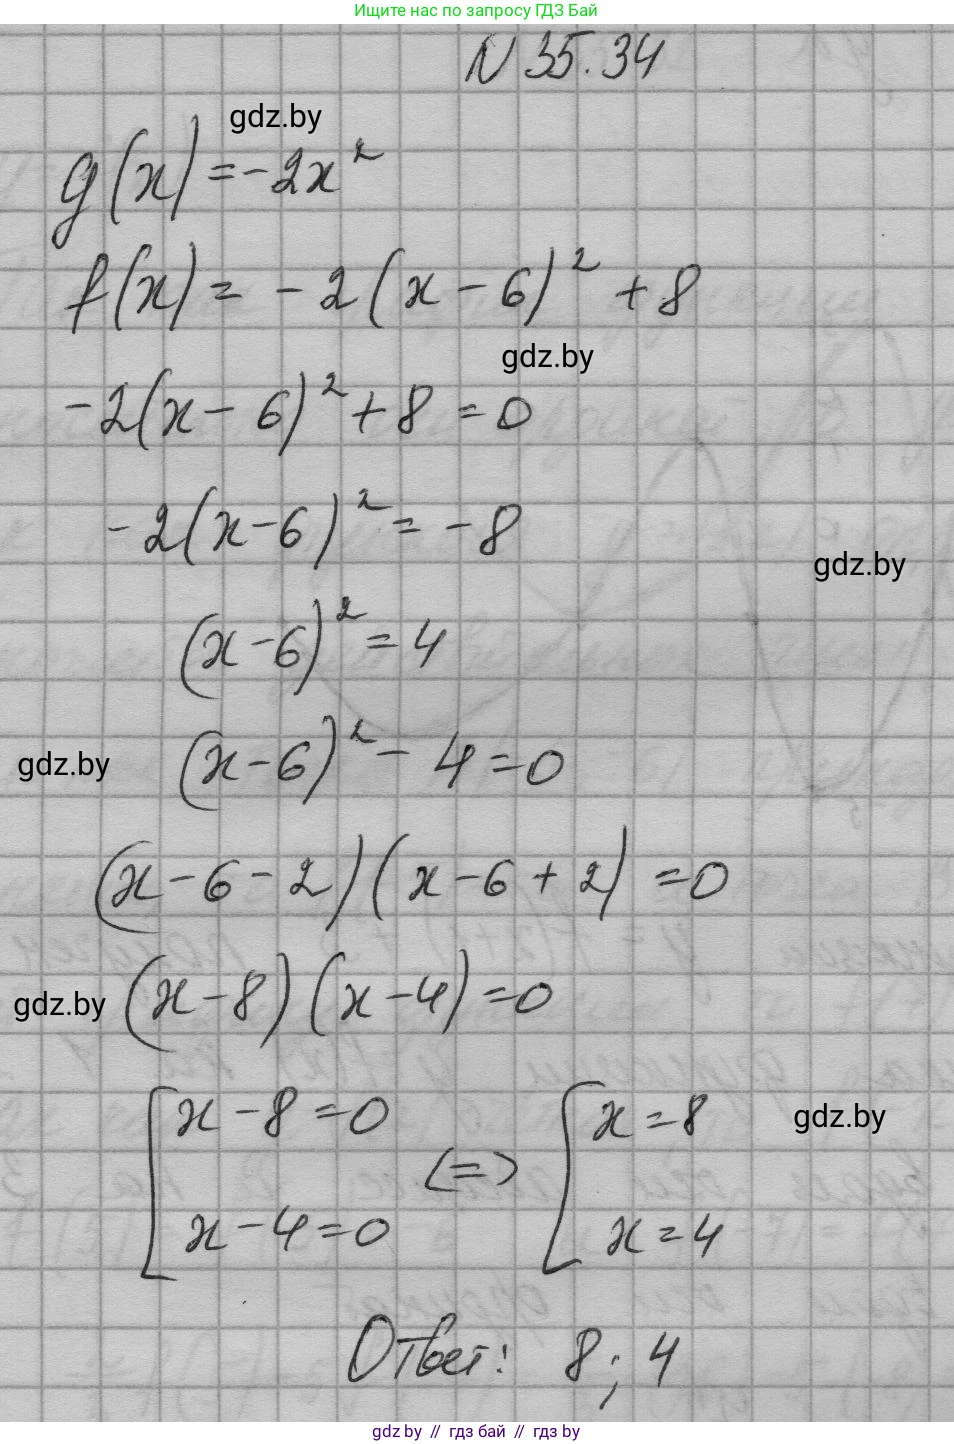 Ищите нас по запросу ГДЗ Бай
N 35.34
gdz.by
g(x) = -2x²
f(x) = -2(x-6)² + 8
gdz.by
-2(x-6)² + 8 = 0
-2(x-6)² = -8
gdz.by
(x-6)² = 4
gdz.by
(x-6)² - 4 = 0
(x-6-2)(x-6+2) = 0
gdz.by
(x-8)(x-4) = 0
[x-8=0 <=> [x=8
gdz.by
x-4=0 x=4
Ответ: 8; 4
gdz.by // гдз бай // гдз by